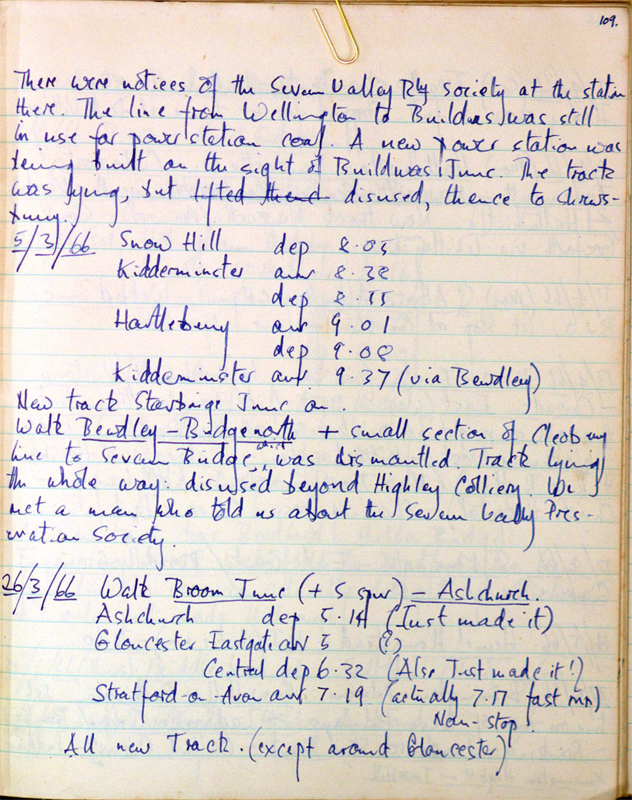 109.
There were notices of the Severn Valley Rly Society at the station
there. The line from Wellington to Buildwas was still
in use for power station coal. A new power station was
being built on the sight of Buildwas Junc. The track
was lying, but lifted thence disused, thence to Shrews-
bury.
5/3/66 Snow Hill dep 8.05
Kidderminster arr 8.38
dep 8.55
Hartlebury arr 9.01
dep 9.08
Kidderminster arr. 9.37 (via Bewdley)
New track Stourbridge Junc on.
Walk Bewdley – Bridgenorth + small section of Cleobury
line to Severn Bridge, which was dismantled. Track lying
the whole way: disused beyond Highley Colliery. We
met a man who told us about the Severn Valley Pres-
ervation Society.
26/3/66 Walk Broom Junc (+ S spur) – Ashchurch.
Ashchurch dep 5.14 (Just made it)
Gloucester Eastgate arr 5 (?)
Central dep 6.32 (Also Just made it!)
Stratford-on-Avon arr 7.19 (actually 7.17 fast run)
Non-stop.
All new Track. (except around Gloucester)